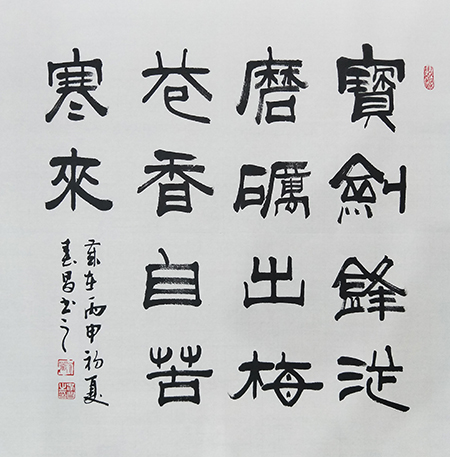 寶劍鋒從
磨礪出梅
花香自苦
寒來
歲在丙申初夏
昌书之